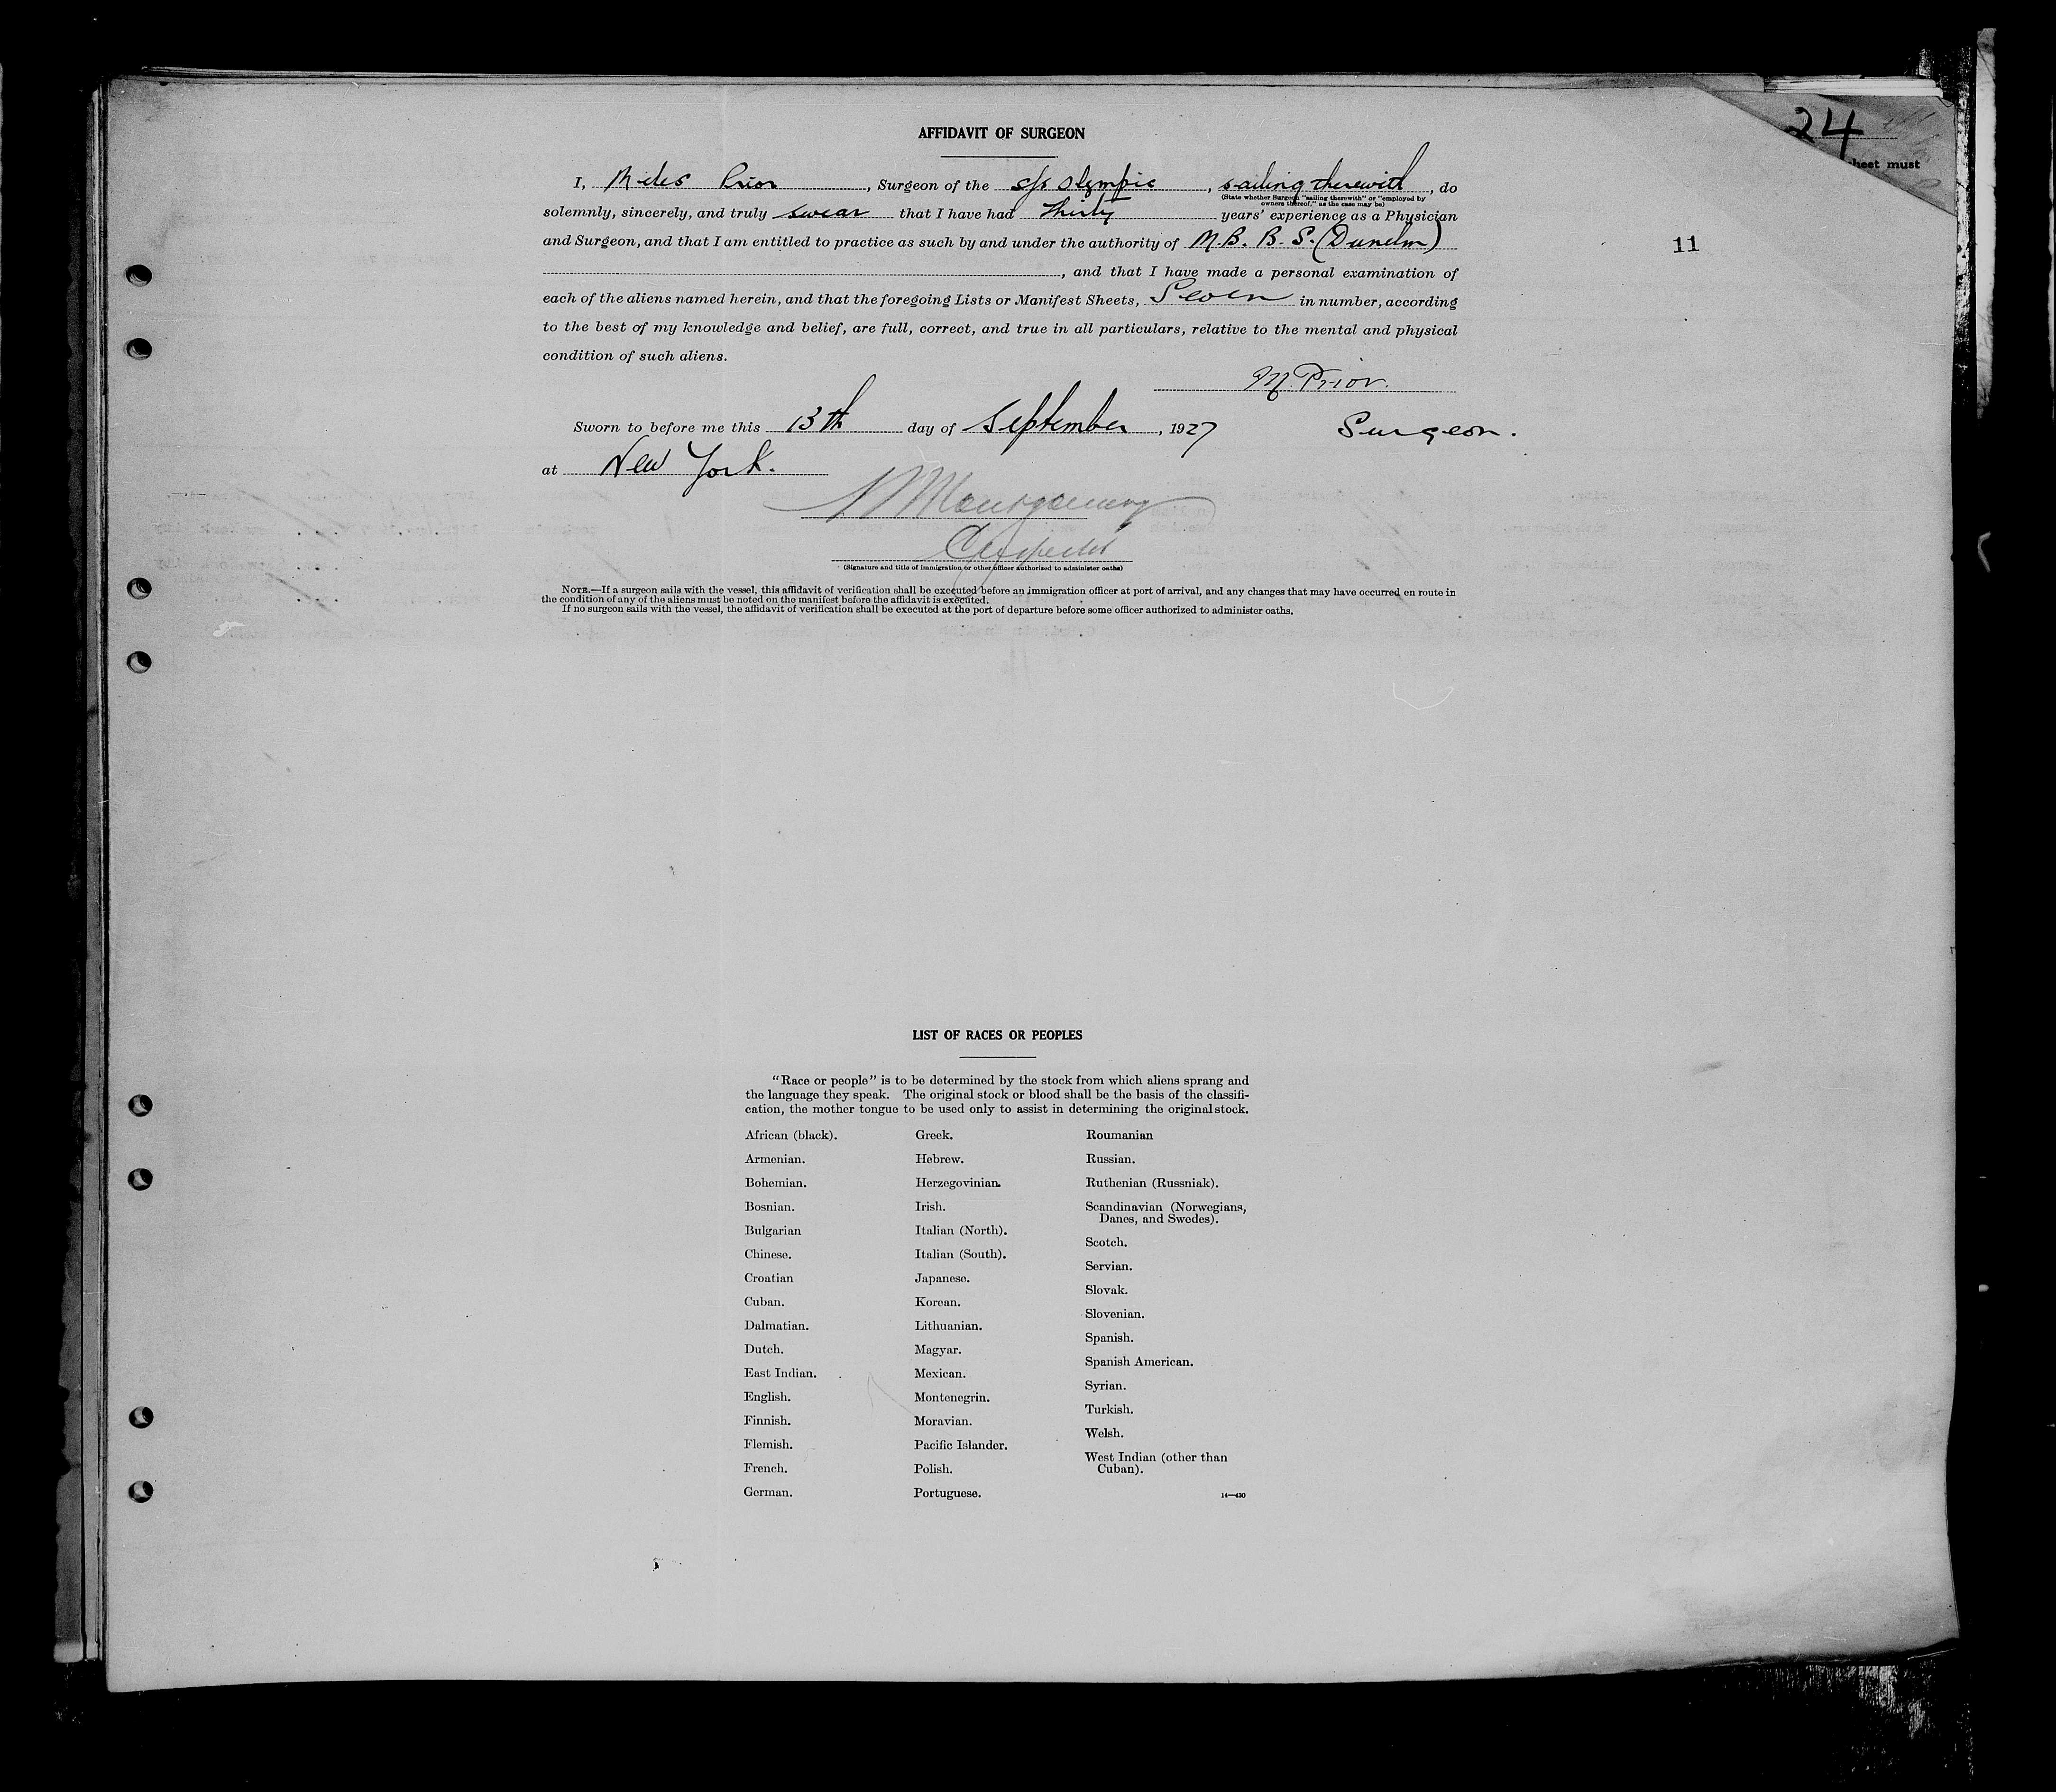 24
sheet must
AFFIDAVIT OF SURGEON
I, Miles Prior, Surgeon of the s/s Olympic, sailing therewith, do
(State whether Surgeon "sailing therewith" or "employed by
owners thereof," as the case may be)
solemnly, sincerely, and truly swear that I have had Thirty years' experience as a Physician
and Surgeon, and that I am entitled to practice as such by and under the authority of M.B. B.S. (Dunelm)
11
, and that I have made a personal examination of
each of the aliens named herein, and that the foregoing Lists or Manifest Sheets, Seven in number, according
to the best of my knowledge and belief, are full, correct, and true in all particulars, relative to the mental and physical
condition of such aliens.
M. Prior.
Sworn to before me this 13th day of September, 1927 Surgeon.
at New York.
Montgomery
(Signature and title of immigration or other officer authorized to administer oaths)
NOTE.—If a surgeon sails with the vessel, this affidavit of verification shall be executed before an immigration officer at port of arrival, and any changes that may have occurred en route in
the condition of any of the aliens must be noted on the manifest before the affidavit is executed.
If no surgeon sails with the vessel, the affidavit of verification shall be executed at the port of departure before some officer authorized to administer oaths.
LIST OF RACES OR PEOPLES
"Race or people" is to be determined by the stock from which aliens sprang and
the language they speak. The original stock or blood shall be the basis of the classifi-
cation, the mother tongue to be used only to assist in determining the original stock.
African (black).
Armenian.
Bohemian.
Bosnian.
Bulgarian
Chinese.
Croatian
Cuban.
Dalmatian.
Dutch.
East Indian.
English.
Finnish.
Flemish.
French.
German.
Greek.
Hebrew.
Herzegovinian.
Irish.
Italian (North).
Italian (South).
Japanese.
Korean.
Lithuanian.
Magyar.
Mexican.
Montenegrin.
Moravian.
Pacific Islander.
Polish.
Portuguese.
Roumanian
Russian.
Ruthenian (Russniak).
Scandinavian (Norwegians,
Danes, and Swedes).
Scotch.
Servian.
Slovak.
Slovenian.
Spanish.
Spanish American.
Syrian.
Turkish.
Welsh.
West Indian (other than
Cuban).
14—430